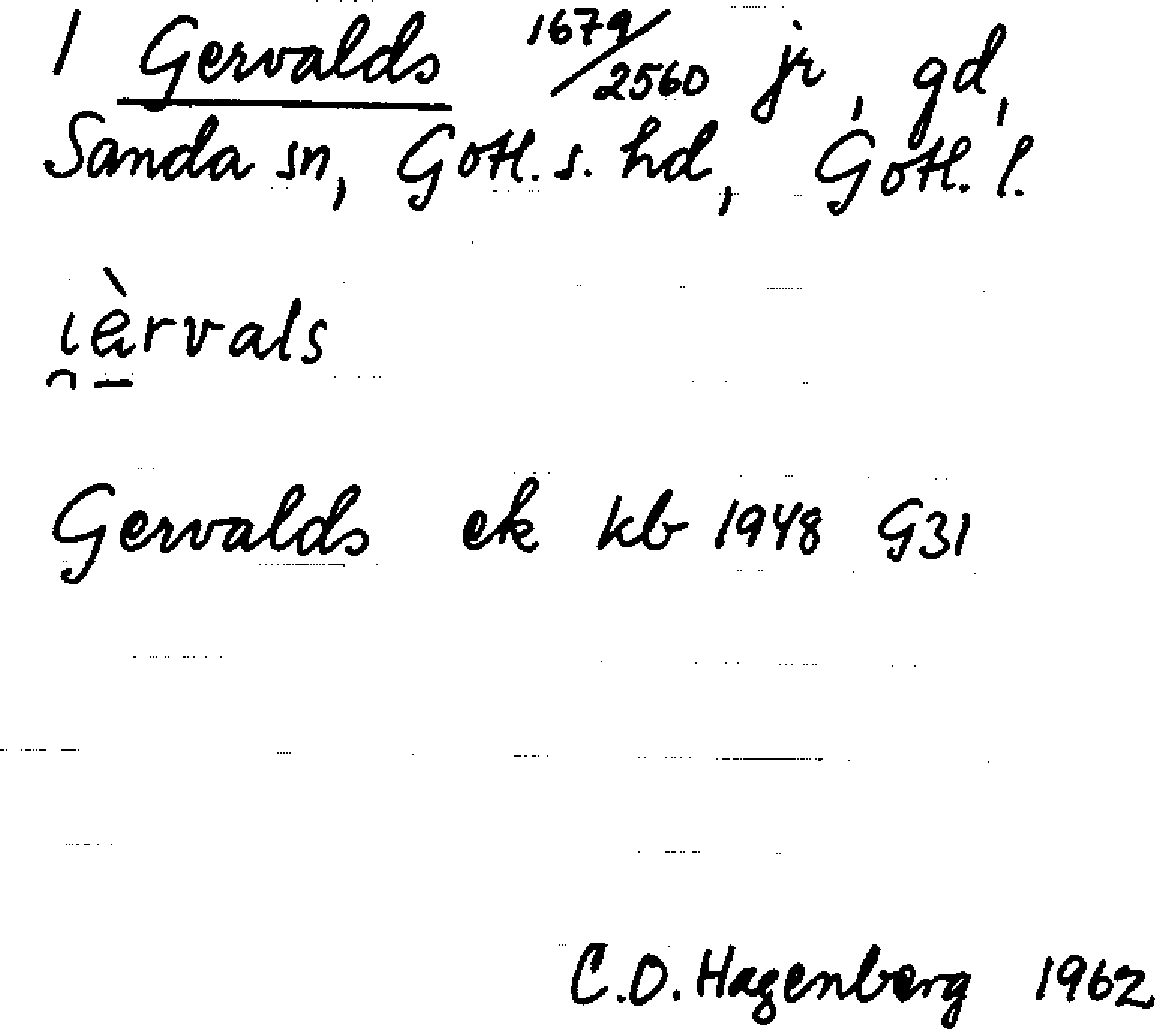 1 Gervalds 1679/2560 jr, gd,
Sanda sn, Gotl. s. hd, Gotl. l.
ɩ̯æ̠̀rvals
Gervalds ek kb 1948 G31
C.O. Hagenberg 1962